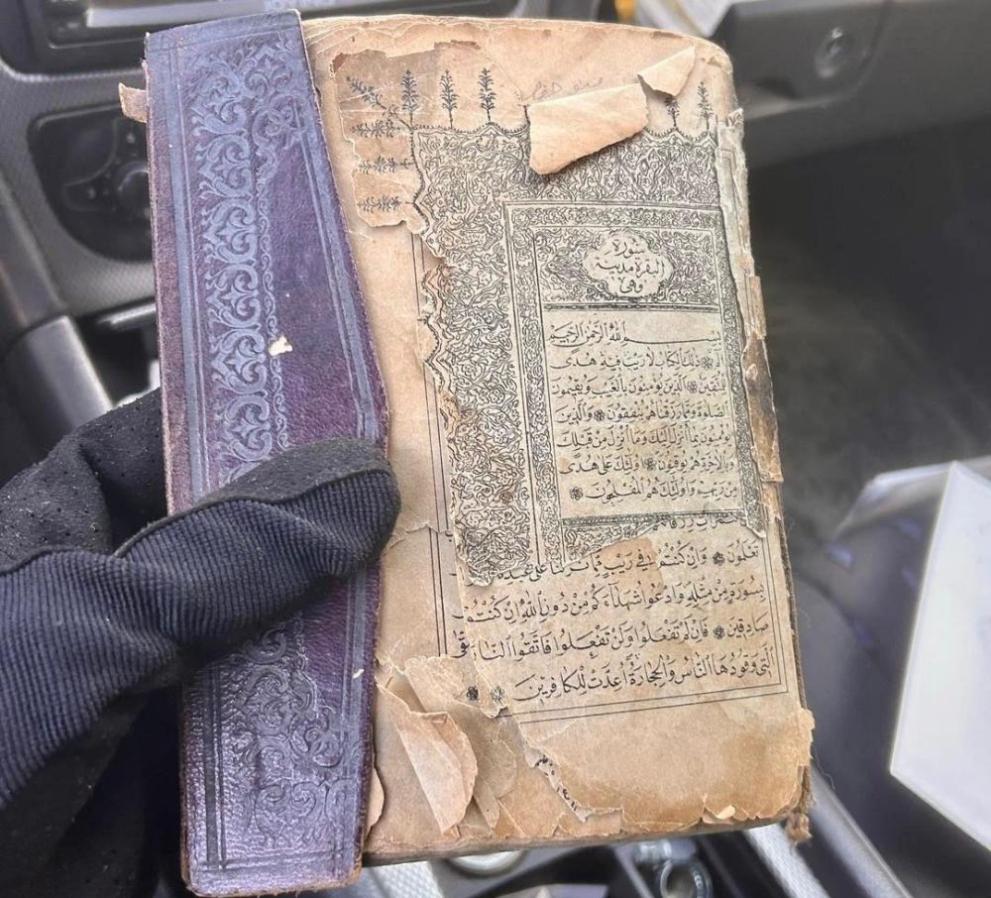 سورة
البقرة مدنية
وهي
بسم الله الرحمن الرحيم
ذلك الكتاب لا ريب فيه هدى
للمتقين الذين يؤمنون بالغيب ويقيمون
الصلوة ومما رزقناهم ينفقون والذين
يؤمنون بما أنزل إليك وما أنزل من قبلك
وبالآخرة هم يوقنون أولئك على هدى
من ربهم وأولئك هم المفلحون
تعلمون وإن كنتم في ريب مما نزلنا على عبدنا
بسورة من مثله وادعوا شهداءكم من دون الله إن كنتم
صادقين فإن لم تفعلوا ولن تفعلوا فاتقوا النار
التي وقودها الناس والحجارة أعدت للكافرين